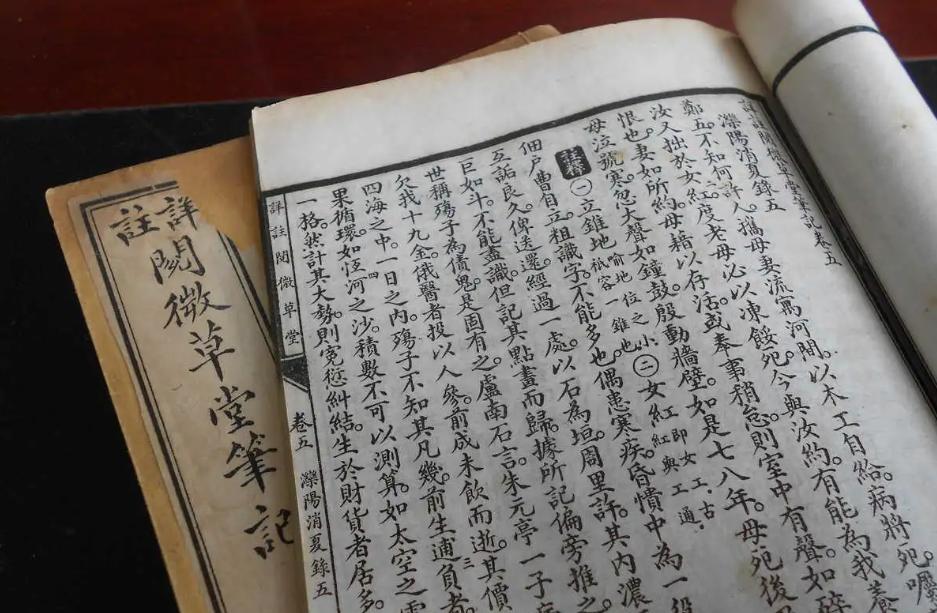 詳註閱微草堂筆記卷五
灤陽消夏錄五
鄭五不知何許人。攜母妻流寓河間。以木工自給。病將死。囑
汝又拙於女紅。二度老母必以凍餒死。今與汝約。有能為我養
恨也。妻如所約。母藉以存活。或奉事稍怠。則室中有聲。如碎
母泣號寒。忽大聲如鐘鼓。殷動牆壁。如是七八年。母死後
註釋 ㊀立錐地 喻地位之小。祇容一錐也 ㊁女紅 即女工。古紅與工通。
佃戶曹自立。粗識字。不能多也。偶患寒疾。昏憒中為一役
互詬良久。俾送還。經過一處。以石為垣。周里許。其內濃
巨如斗。不能盡識。但記其點畫而歸。據所記偏旁推之
世稱殤子為債鬼。是固有之。盧南石言。朱元亭一子病
欠我十九金。俄醫者投以人參。煎成未飲而逝。其價
四海之中。一日之內。殤子不知其凡幾。前生逋負者三
果循環。如恆河四之沙。積數不可以測算。如太空之雲
一格。然計其大勢。則冤愆糾結。生於財貨者居多。
詳註閱微草堂 卷五 灤陽消夏錄五
詳註閱微草堂筆記